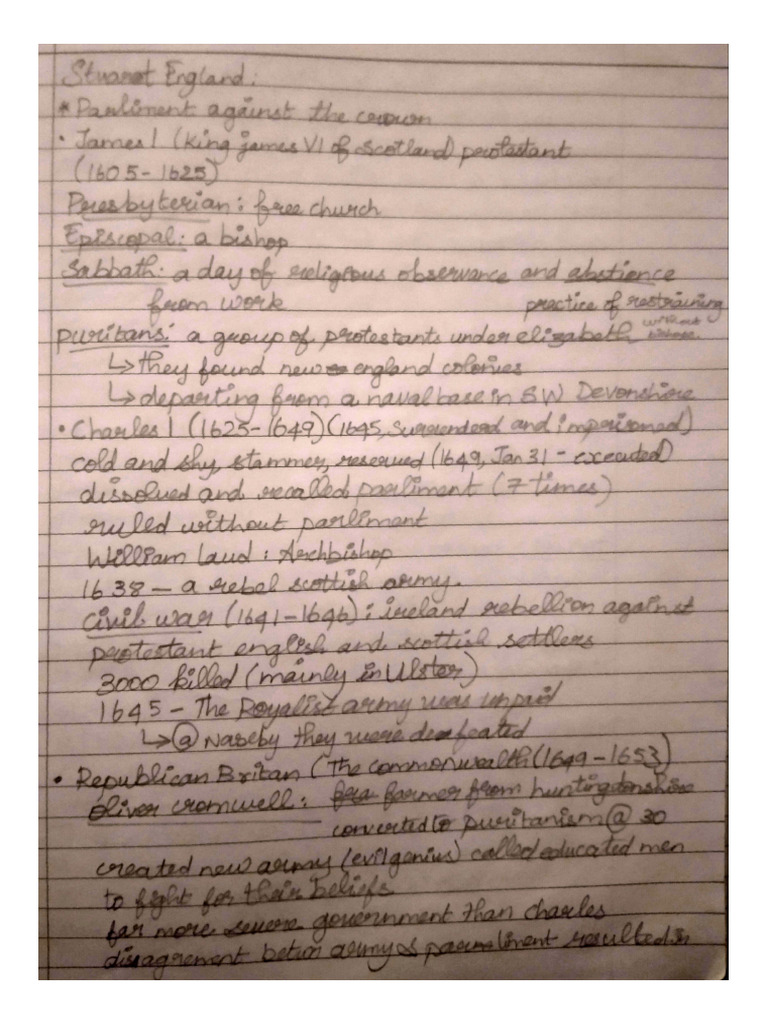 Stuart England:
* Parliment against the crown
• James 1 (King james VI of Scotland) protestant
(1605 - 1625)
Presbyterian: free church
Episcopal: a bishop
Sabbath: a day of religious observance and abstience
from work practice of restraining
puritans: a group of protestants under elizabeth without bishops.
↳ they found new england colonies
↳ departing from a naval base in SW Devonshire
• Charles 1 (1625-1649) (1645, Surrendered and imprisoned)
cold and shy, stammer, reserved (1649, Jan 31 - executed)
dissolved and recalled parliment (7 times)
ruled without parliment
William Laud: Archbishop
1638 — a rebel scottish army.
Civil war (1641-1646): ireland rebellion against
protestant english and scottish settlers
3000 killed (mainly in Ulster)
1645 - The Royalist army was unpaid
↳ @ Naseby they were defeated
• Republican Britan (The commonwealth (1649-1653)
Oliver cromwell: farmer from huntingdonshire
converted to puritanism @ 30
created new army (evil genius) called educated men
to fight for their beliefs
far more severe government than charles
disagrement betwn army & parliment resulted in